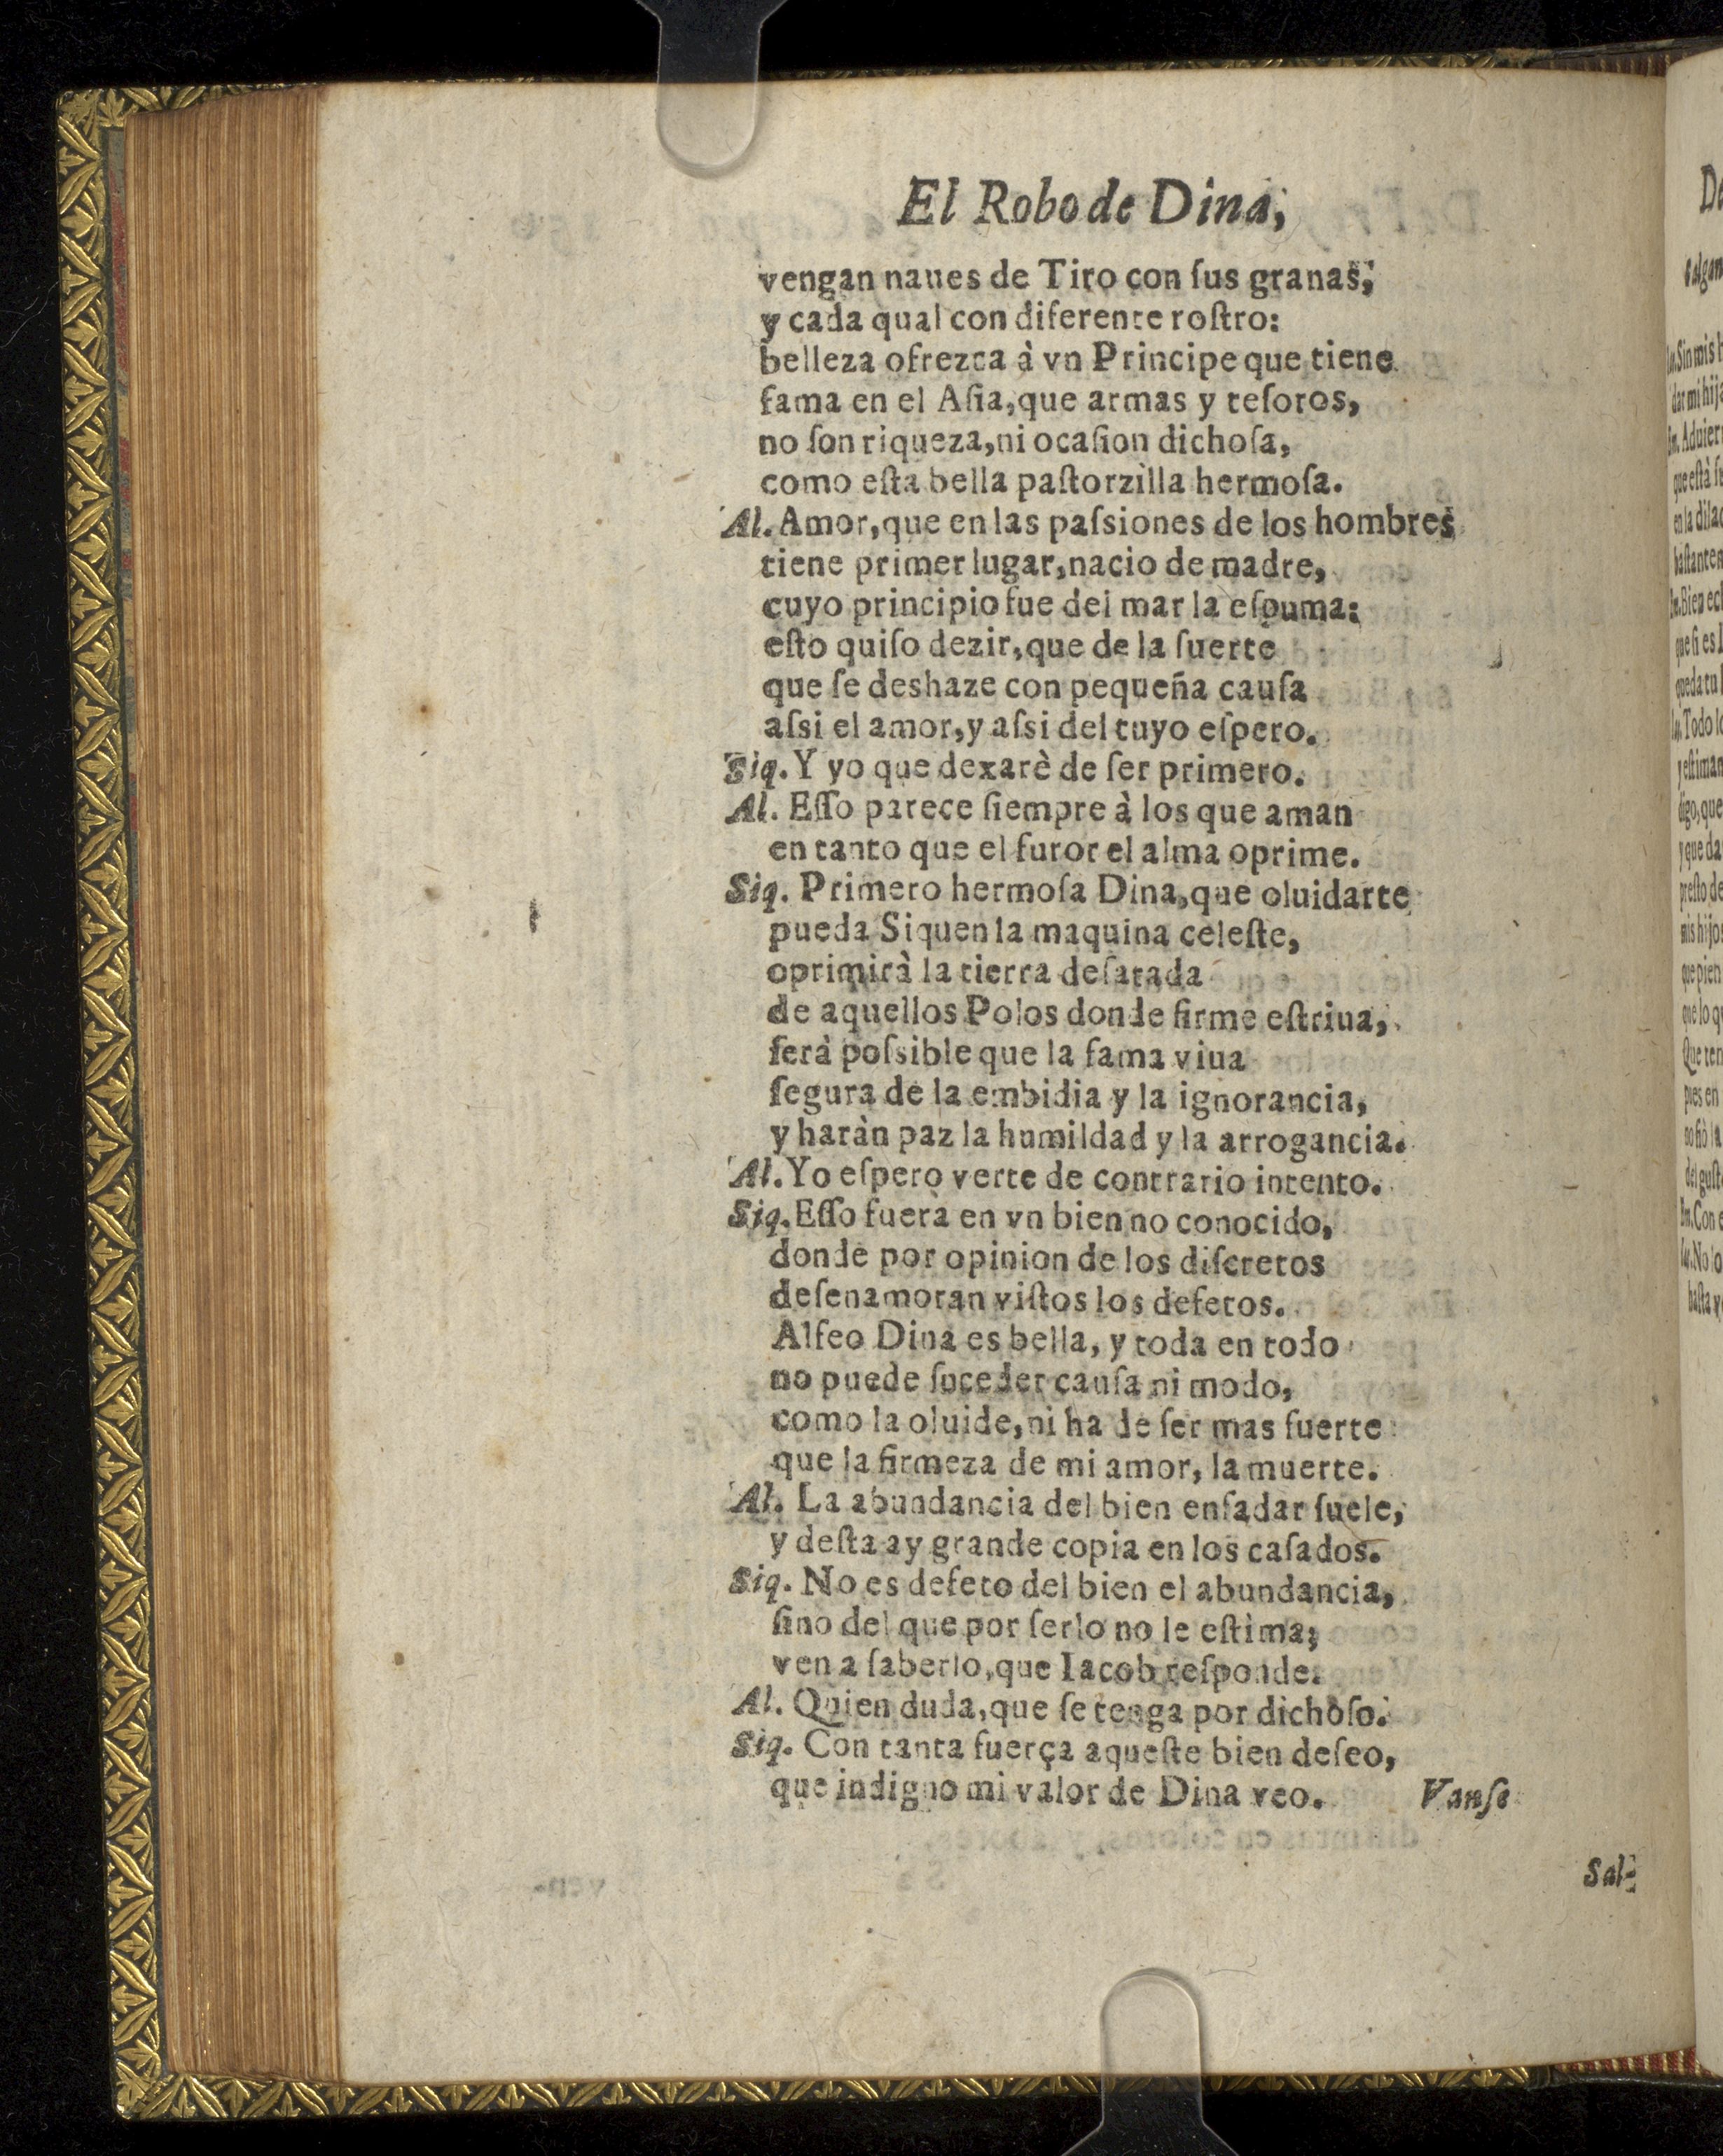 El Robo de Dina,
vengan naues de Tiro con ſus granas,
y cada qual con diferente roſtro:
belleza ofrezca à vn Principe que tiene
fama en el Aſia, que armas y teſoros,
no ſon riqueza, ni ocaſion dichoſa,
como eſta bella paſtorzilla hermoſa.
Al. Amor, que en las paſsiones de los hombres
tiene primer lugar, nacio de madre,
cuyo principio fue del mar la eſpuma:
eſto quiſo dezir, que de la ſuerte
que ſe deshaze con pequeña cauſa
aſsi el amor, y aſsi del tuyo eſpero.
Siq. Y yo que dexarè de ſer primero.
Al. Eſſo parece ſiempre à los que aman
en tanto que el furor el alma oprime.
Siq. Primero hermoſa Dina, que oluidarte
pueda Siquen la maquina celeſte,
oprimirà la tierra deſatada
de aquellos Polos donde firme eſtriua,
ſerà poſsible que la fama viua
ſegura de la embidia y la ignorancia,
y haràn paz la humildad y la arrogancia.
Al. Yo eſpero verte de contrario intento.
Siq. Eſſo fuera en vn bien no conocido,
donde por opinion de los diſcretos
deſenamoran viſtos los defetos.
Alfeo Dina es bella, y toda en todo
no puede ſuceder cauſa ni modo,
como la oluide, ni ha de ſer mas fuerte
que la firmeza de mi amor, la muerte.
Al. La abundancia del bien enfadar ſuele,
y deſta ay grande copia en los caſados.
Siq. No es defeto del bien el abundancia,
ſino del que por ſerlo no le eſtima;
ven a ſaberlo, que Iacob reſponde.
Al. Quien duda, que ſe tenga por dichoſo.
Siq. Con tanta fuerça aqueſte bien deſeo,
que indigno mi valor de Dina veo. Vanſe
Sal-